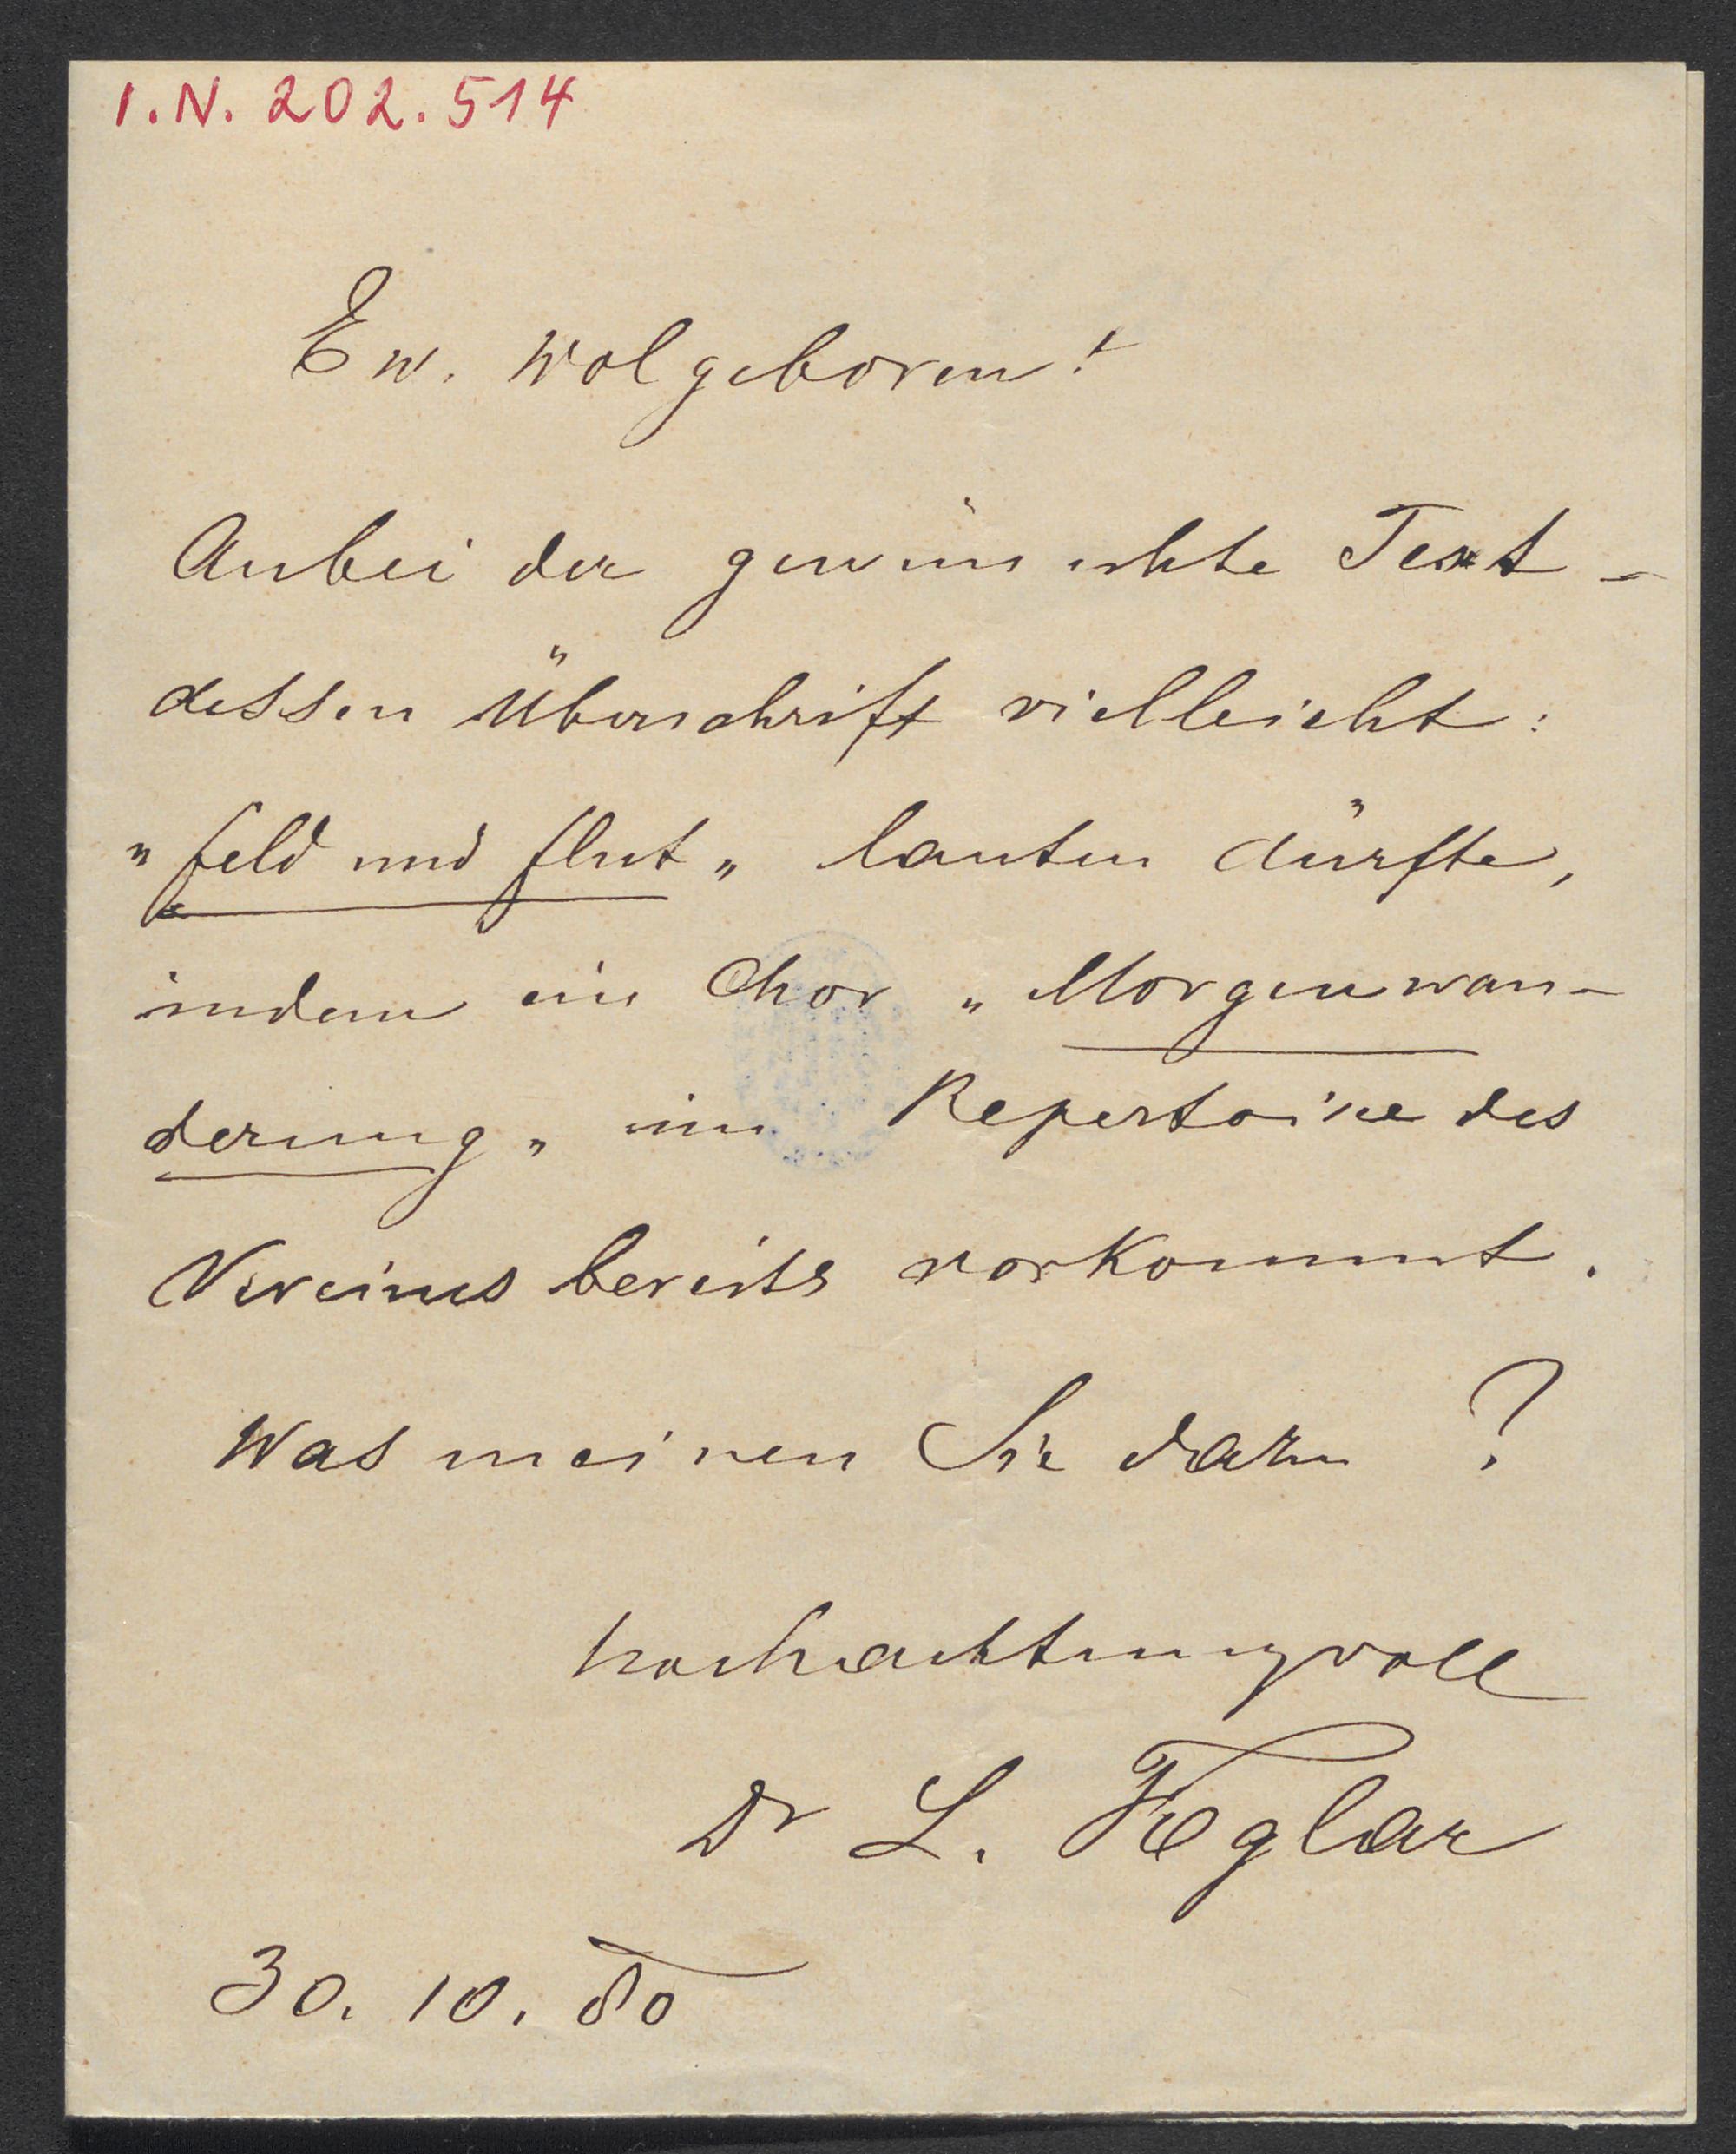 I.N. 202.514
Ew. Wolgeboren!
Anbei der gewünschte Text –
dessen Überschrift vielleicht:
„Feld und Flut„ lauten dürfte,
indem ein Chor „Morgenwan-
derung„ im Repertoire des
Vereines bereits vorkommt.
Was meinen Sie dazu?
hochachtungsvoll
Dr L. Foglar
30. 10. 80